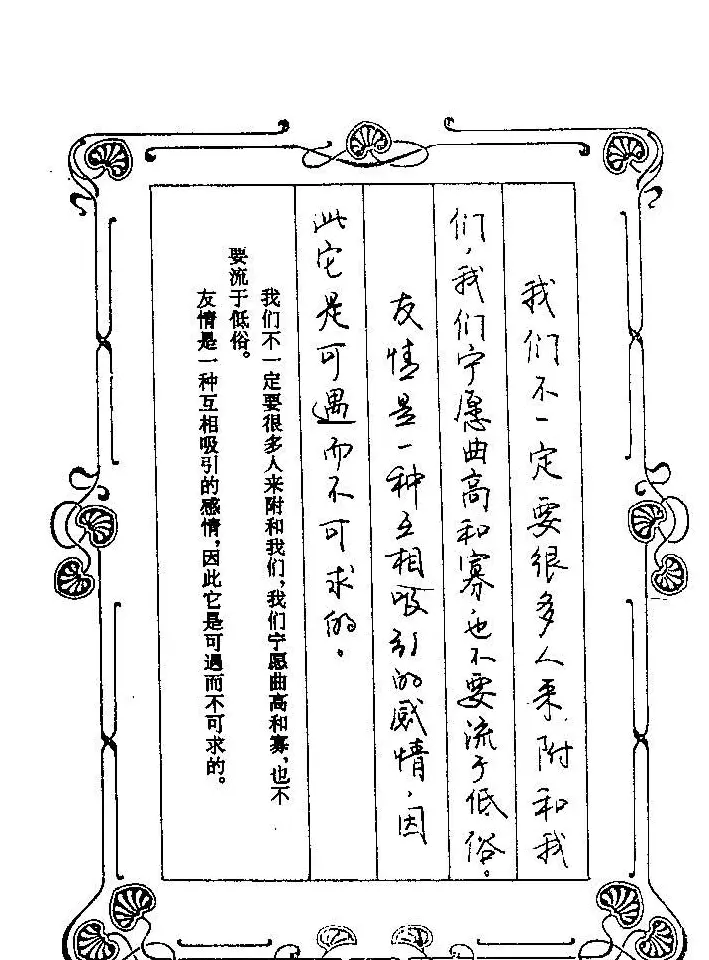 我们不一定要很多人来附和我
们,我们宁愿曲高和寡也不要流于低俗。
友情是一种互相吸引的感情,因
此它是可遇而不可求的。
我们不一定要很多人来附和我们,我们宁愿曲高和寡,也不
要流于低俗。
友情是一种互相吸引的感情,因此它是可遇而不可求的。